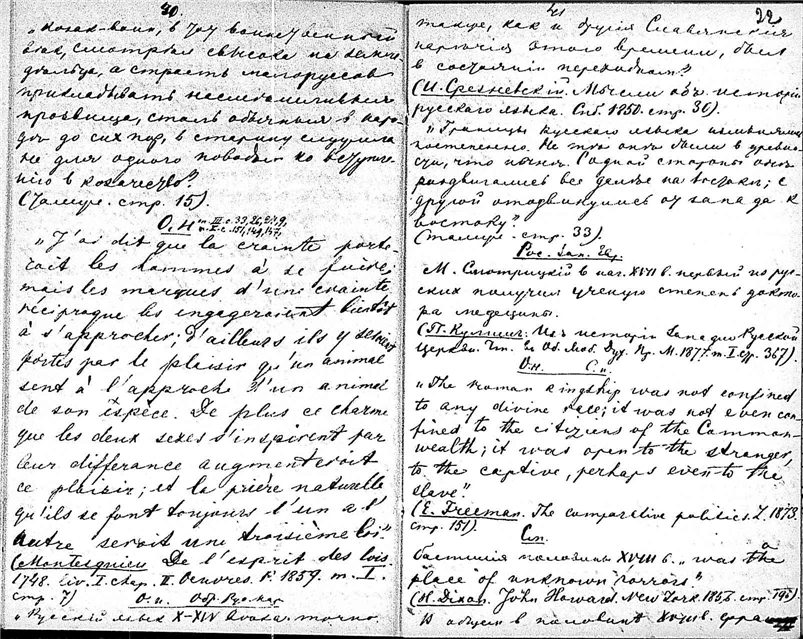 30.
„Козак-воин, в
век, смотрел свысока на земле-
дельца, а страсть малоруссов
прикладывать насмешливыя
прозвища, столь обычныя в наро-
де до сих пор, в старину служила
не для одного поводом ко вступле-
нію в козачество".
(Тамже. стр. 15).
О. н.
„J'ai dit que la crainte porte-
roit les hommes à se fuire;
mais les marques d'une crainte
réciproque les engageraient bientôt
à s'approcher; d'ailleurs ils y seraient
portés par le plaisir qu'un animal
sent à l'approche d'un animal
de son espèce. De plus ce charme
que les deux sexes s'inspirent par
leur differance augmenteroit
ce plaisir; et la prière naturelle
qu'ils se font toujours l'un a l'
autre seroit une troisième loi."
(Montesquieu De l'esprit des lois
1748. liv. I. chap. II. Oeuvres. P. 1859. т. I.
стр. 7)
О. н. Обр. Рус. нар.
„Русскій язык X–XIV века. точно
41
22
такце, как и другія Славянскія
наречія этого времени, был
в состоянии переходном".
(И. Срезневскій. Мысли об исторіи
русскаго языка. Спб. 1850. стр. 36).
„Границы русскаго языка изменялись
постепенно. Не те оне были в древно-
сти, что ныне. С одной стороны оне
раздвигались все далее на востокъ; с
другой отодвинулись от запада к
востоку".
(тамже. стр. 33).
Рос. Зап. Ев.
М. Смотрицкій в нач. XVII в. первый из рус-
ских получил ученую степень докто-
ра медецины.
(П. Кулиш. Из исторіи Западно Русской
Церкви. Чт. в Об. Люб. Дух. Пр. М. 1877. т. I. стр. 367).
О. н. С. н.
„The Roman Kingship was not confined
to any divine race; it was not even con-
fined to the citizens of the Common-
wealth; it was open to the stranger,
to the captive, perhaps even to the
slave."
(E. Freeman. The comparative politics. L. 1873.
стр. 151).
С. н.
Бастилия половины XVIII в. „was the
place of unknown horrors"
(H. Dixon. John Howard. New York. 185 стр.
В половине XVIII в.